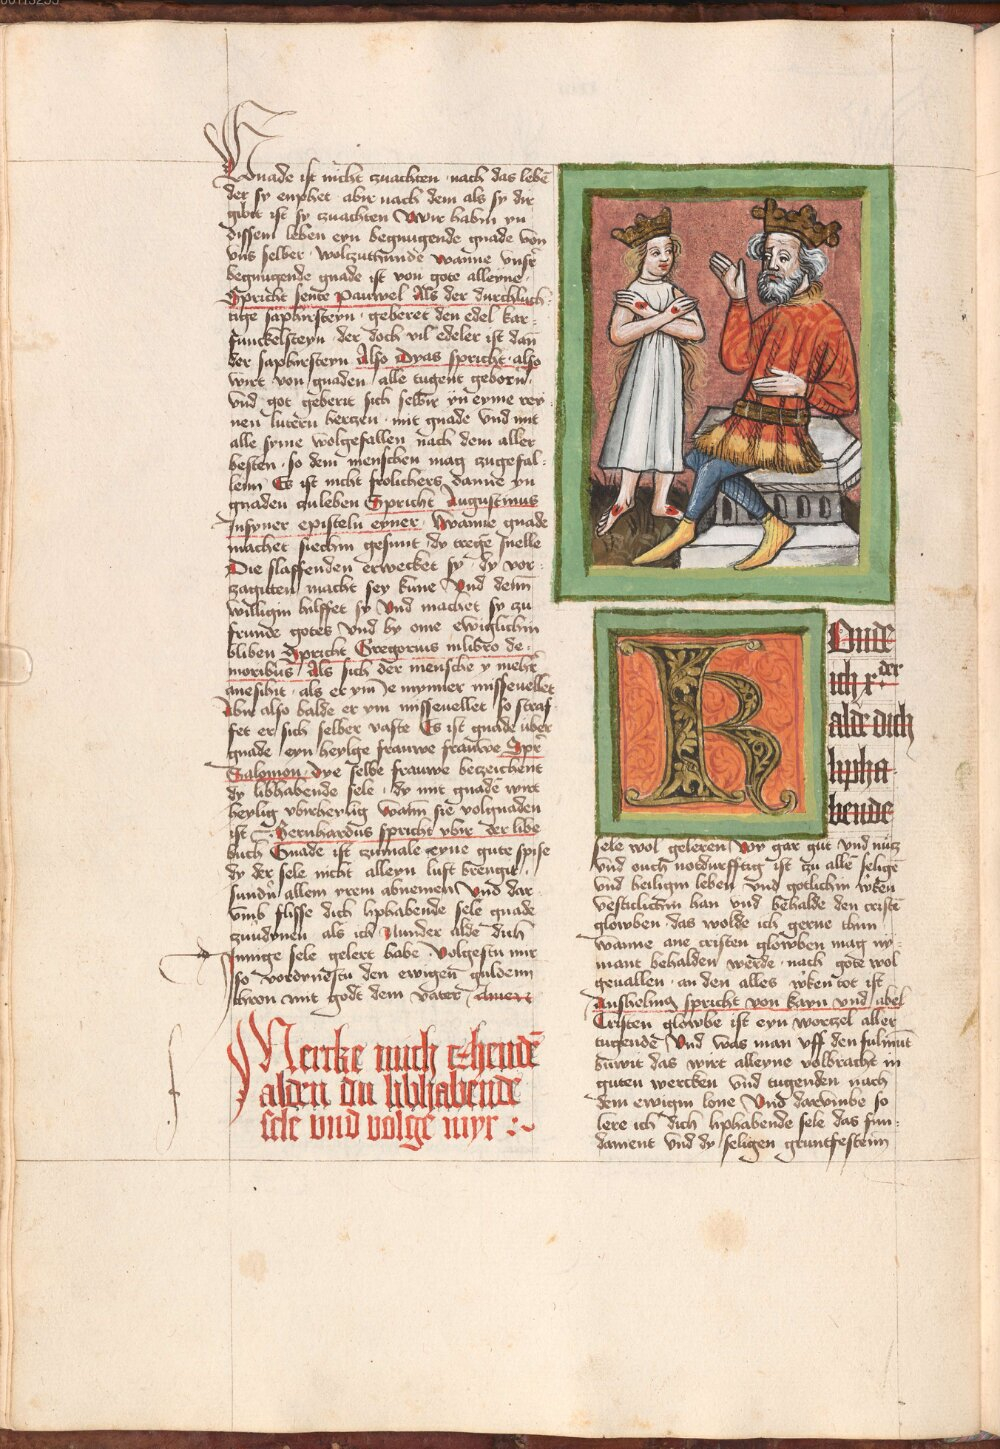 Gnade ist nicht zuachten nach das lebē
der sy enphet abir nach dem als sy dir
gibit ist sy zuachten Wir habin yn
dissem leben eyn begnugende gnade von
vns selber wolzuthunde wanne vnsr̄
begnugende gnade ist von gote alleyne
Spricht sente pauwel Als der durchluch
tige saphirsteyn geberet den edel kar
funckelsteyn der doch vil edeler ist dan
der saphirsteyn Also Dyas spricht also
wirt von gnaden alle tugent geborn
vnd got geberit sich selbir yn eyme rey
nen lutern hertzen mit gnade vnd mit
alle syme wolgefallen nach dem aller
besten so dem menschen mag zugefal
lenn Es ist nicht frolichers danne yn
gnaden zuleben Spricht Augustinus
Insyner episteln eyner Wanne gnade
machet siechin gesunt dy trege snelle
Die slaffenden erwecket sy dy vor
zagitten macht sey kune Vnd denn
willigin hilffet sy Vnd machet sy zu
frunde gotes vnd by ome ewiglichin
bliben Spricht Gregorius in libro de
moribus Als sich der mensche y mehr
anesihit als er ym ye mynner missevellet
Abir also balde er ym missevellet so straf
fet er sich selber vaste Es ist gnade vber
gnade eyn heylge frauwe frauwe Spr̄
Salomon Dye selbe frauwe betzeichent
dy libhabende sele dy mit gnade wirt
heylig vbirheylig wann sie volgnaden
ist Bernhardus spricht vbir der libe
buch Gnade ist zumale eyne gute spise
dy der sele nicht alleyn lust brengit
sundir allem yrem abnemen Vnd dar
vmb flisse dich liphabende sele gnade
zuvordynen als ich Nunder alde dich
Innige sele gelert habe Volgestu mir
so vordynestu den ewigen guldenn
thron mit gode dem vater Amen
Mercke mich c̄zhende
alden du libhabende
sele vnd volge myr
Kunde
ich x der
alde dich
lipha
bende
sele wol geleren Wy gar gut vnd nucz
vnd ouch notdurfftig ist zu allē selige
vnd heiligin leben vnd gotlichin w̄ken
vesticlichin han vnd behalde den criste
glowben das wolde ich gerne thun
wanne ane cristen glowben mag ny
mant behalden werde nach gote wol
geuallen an den alles w̄ken tot ist
Anshelmus spricht von kayn vnd abel
Cristen glowbe ist eyn wortzel aller
tugende Vnd was man vff den fulmūt
buwit das wirt alleyne volbracht in
guten wercken vnd tugenden nach
dem ewigin lone Vnd darvmbe so
lere ich dich liphabende sele das fun
dament vnd dy seligen gruntfestenn